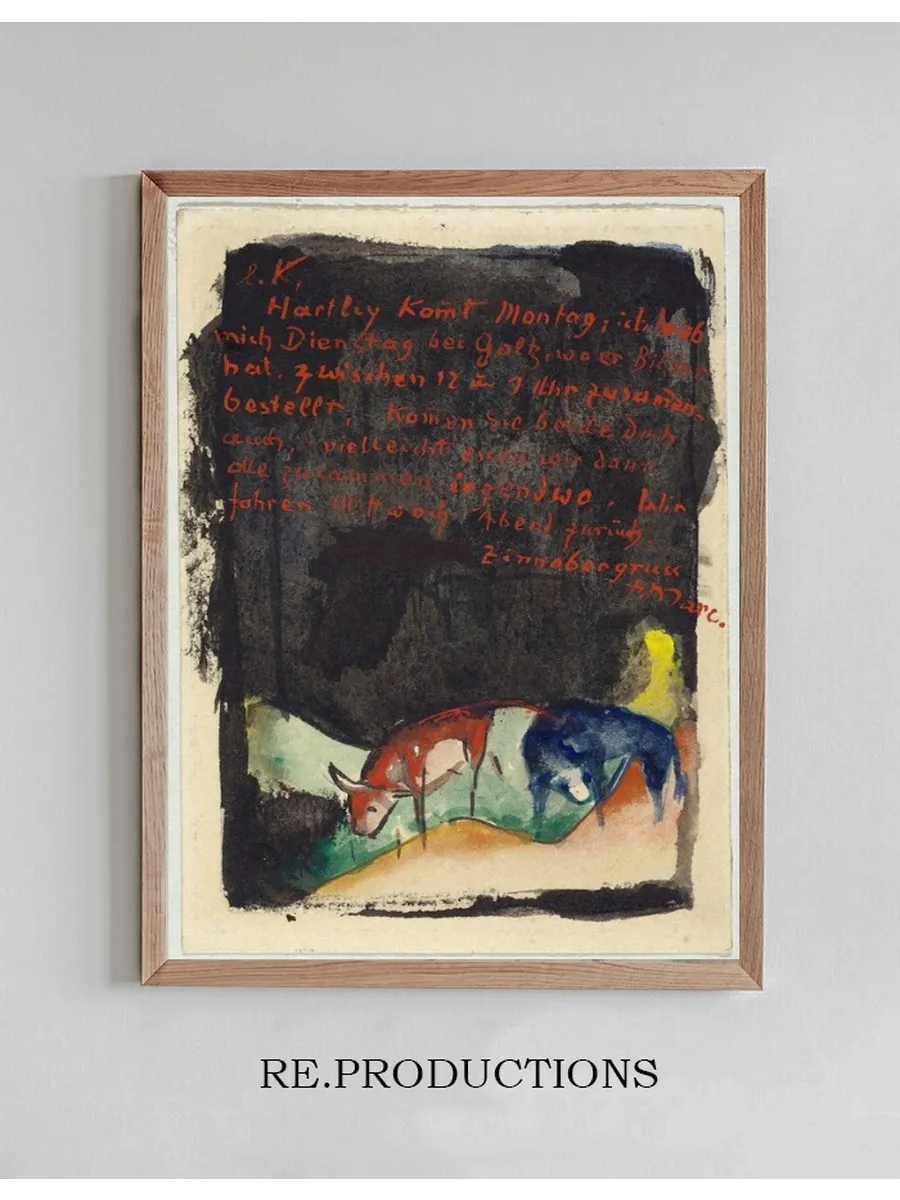 l. K,
Hartley Komt Montag, ich hab
mich Dienstag bei Goltz, wo er Bilder
hat, zwischen 12 u 1 Uhr zusamen-
bestellt, Komen Sie beide doch
auch, vielleicht essen wir dann
alle zusammen irgendwo, Wir
fahren Mittwoch Abend zurück.
Zinnobergruss
Fz Marc.
RE.PRODUCTIONS